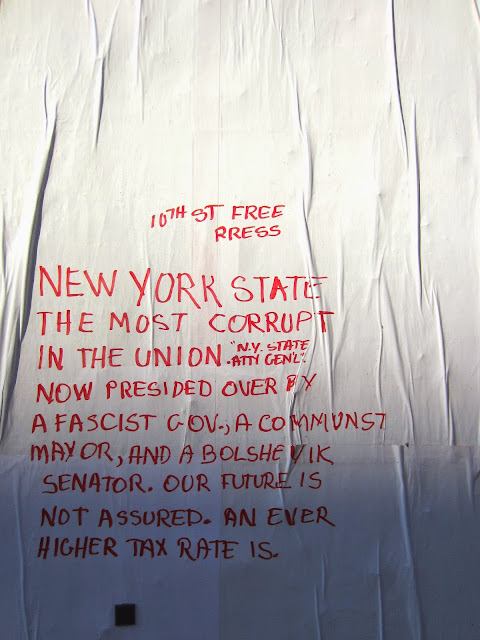 10TH ST FREE
PRESS
NEW YORK STATE
THE MOST CORRUPT
IN THE UNION. "N.Y. STATE
ATTY GEN'L".
NOW PRESIDED OVER BY
A FASCIST GOV., A COMMUNST
MAYOR, AND A BOLSHEVIK
SENATOR. OUR FUTURE IS
NOT ASSURED. AN EVER
HIGHER TAX RATE IS.